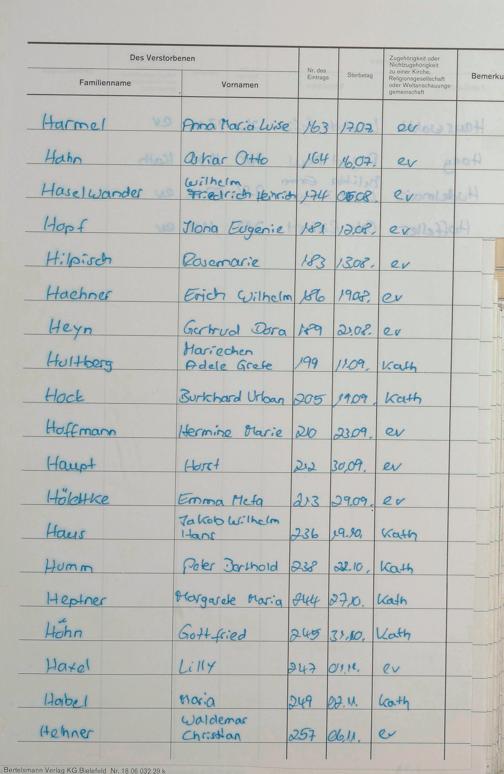 Des Verstorbenen
Familienname
Vornamen
Nr. des Eintrags
Sterbetag
Zugehörigkeit oder
Nichtzugehörigkeit
zu einer Kirche,
Religionsgesellschaft
oder Weltanschauungs-
gemeinschaft
Bemerku
Harmel Anna Maria Luise 163 17.07. ev
Hahn Oskar Otto 164 16.07. ev
Haselwander Wilhelm Friedrich Heinrich 174 05.08. ev
Hopf Ilona Eugenie 181 12.08. ev
Hilpisch Rosemarie 183 13.08. ev
Haehner Erich Wilhelm 186 19.08. ev
Heyn Gertrud Dora 189 21.08. ev
Hultberg Mariechen Adele Grete 199 11.09. Kath
Hock Burkhard Urban 205 19.09. Kath
Hoffmann Hermine Marie 210 23.09. ev
Haupt Horst 212 30.09. ev
Emma Meta 213 29.09. ev
Haus Jakob Wilhelm Hans 236 19.10. Kath
Humm Peter 238 22.10. Kath
Heptner Margarete Maria 244 27.10. Kath
Höhn Gottfried 245 31.10. Kath
Haxel Lilly 247 01.11. ev
Habel Maria 249 02.11. Kath
Hehner Waldemar Christian 257 06.11. ev
Bertelsmann Verlag KG Bielefeld Nr. 18 06 032 29 k